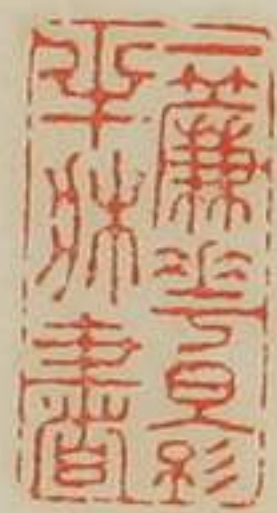 一簾花影
半牀書